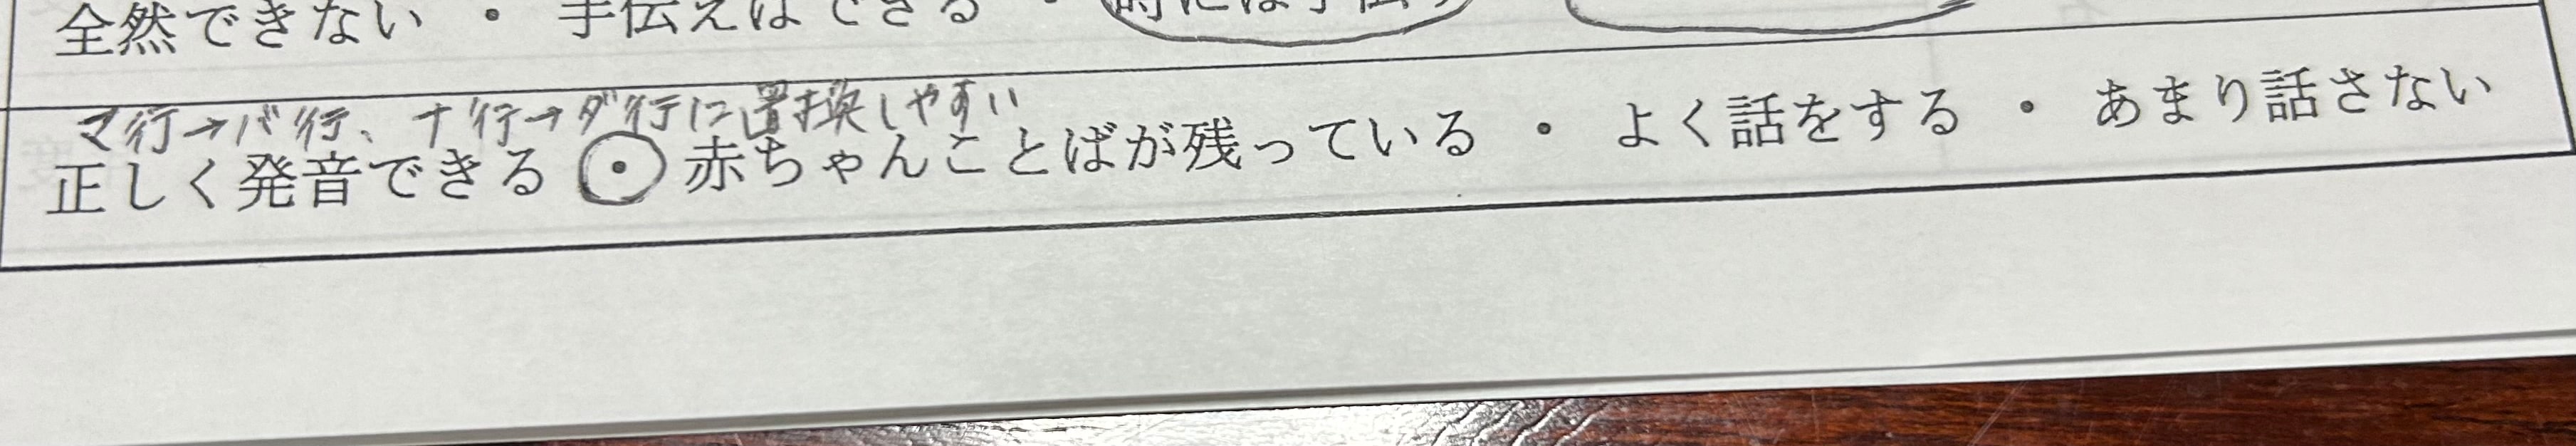 全然できない ・ 手伝えばできる ・ 時には手伝う
マ行→バ行、ナ行→ダ行に置換しやすい
正しく発音できる ・ 赤ちゃんことばが残っている ・ よく話をする ・ あまり話さない